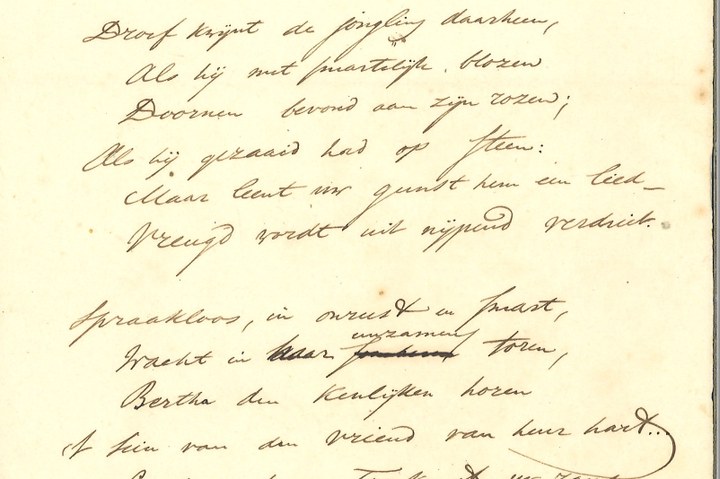 Droef kwijnt de jongling daarheen,
Als hij met smartelijk blozen
Doornen bevond aan zijn rozen;
Als hij gezaaid had op steen:
Maar leent uw gunst hem een lied –
Vreugd wordt uit nijpend verdriet.
Spraakloos, in onrust en smart,
Wacht in haar eenzamen toren,
Bertha den kenlijken horen
't Sein van den vriend van heur hart...